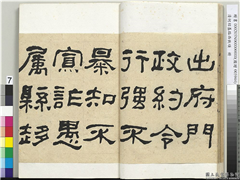 出府門
政約令
行強不
暴知不
寡詐愚
屬縣趍
7